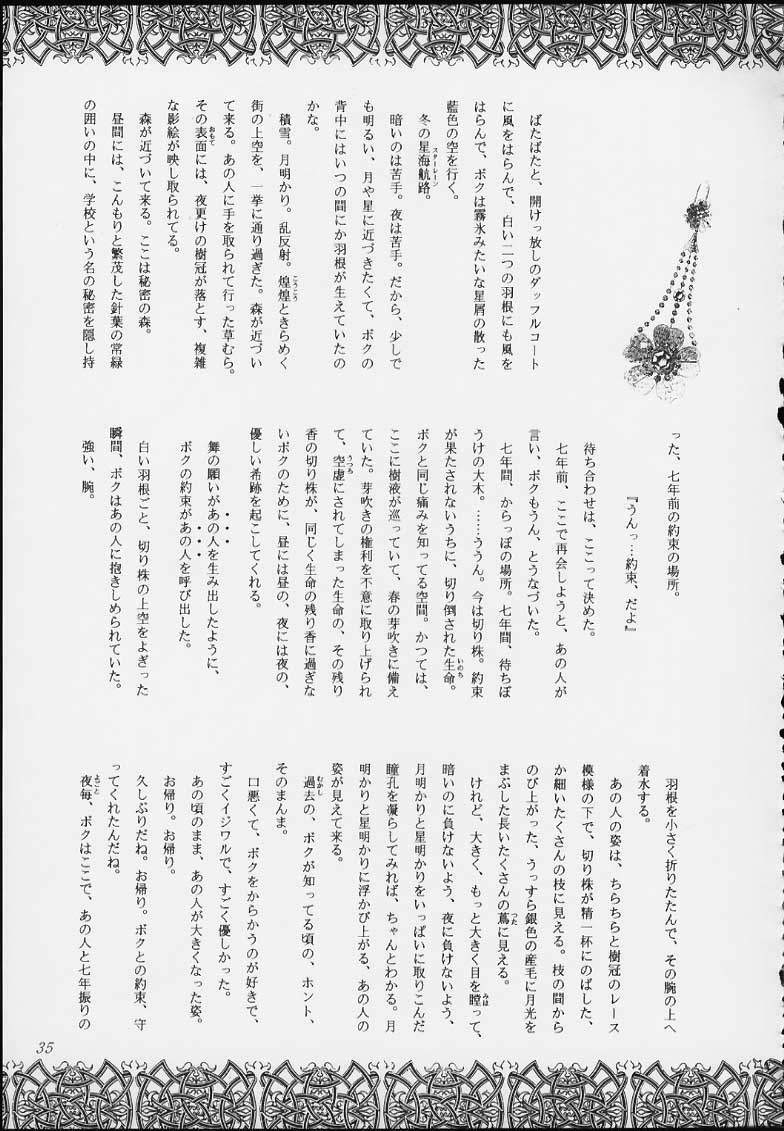 ばたばたと、開けっ放しのダッフルコート
に風をはらんで、白い二つの羽根にも風を
はらんで、ボクは霧氷みたいな星屑の散った
藍色の空を行く。
冬の星海航路。
スターレーン
暗いのは苦手。夜は苦手。だから、少しで
も明るい、月や星に近づきたくて、ボクの
背中にはいつの間にか羽根が生えていたの
かな。
積雪。月明かり。乱反射。煌煌ときらめく
こうこう
街の上空を、一挙に通り過ぎた。森が近づい
て来る。あの人に手を取られて行った草むら。
その表面には、夜更けの樹冠が落とす、複雑
おもて
な影絵が映し取られてる。
森が近づいて来る。ここは秘密の森。
昼間には、こんもりと繁茂した針葉の常緑
の囲いの中に、学校という名の秘密を隠し持
った、七年前の約束の場所。
『うんっ…約束、だよ』
待ち合わせは、ここって決めた。
七年前、ここで再会しようと、あの人が
言い、ボクもうん、とうなづいた。
七年間、からっぽの場所。七年間、待ちぼ
うけの大木。……ううん。今は切り株。約束
が果たされないうちに、切り倒された生命。
いのち
ボクと同じ痛みを知ってる空間。かつては、
ここに樹液が巡っていて、春の芽吹きに備え
ていた。芽吹きの権利を不意に取り上げられ
て、空虚にされてしまった生命の、その残り
うつろ
香の切り株が、同じく生命の残り香に過ぎな
いボクのために、昼には昼の、夜には夜の、
優しい奇跡を起こしてくれる。
舞の願いがあの人を生み出したように、
ボクの約束があの人を呼び出した。
白い羽根ごと、切り株の上空をよぎった
瞬間、ボクはあの人に抱きしめられていた。
強い、腕。
羽根を小さく折りたたんで、その腕の上へ
着水する。
あの人の姿は、ちらちらと樹冠のレース
模様の下で、切り株が精一杯にのばした、
か細いたくさんの枝に見える。枝の間から
のび上がった、うっすら銀色の産毛に月光を
まぶした長いたくさんの蔦に見える。
つた
けれど、大きく、もっと大きく目を瞠って、
みは
暗いのに負けないよう、夜に負けないよう、
月明かりと星明かりをいっぱいに取りこんだ
瞳孔を凝らしてみれば、ちゃんとわかる。月
明かりと星明かりに浮かび上がる、あの人の
姿が見えて来る。
過去の、ボクが知ってる頃の、ホント、
むかし
そのまんま。
口悪くて、ボクをからかうのが好きで、
すごくイジワルで、すごく優しかった。
あの頃のまま、あの人が大きくなった姿。
お帰り。お帰り。
久しぶりだね。お帰り。ボクとの約束、守
ってくれたんだね。
夜毎、ボクはここで、あの人と七年振りの
よごと
35